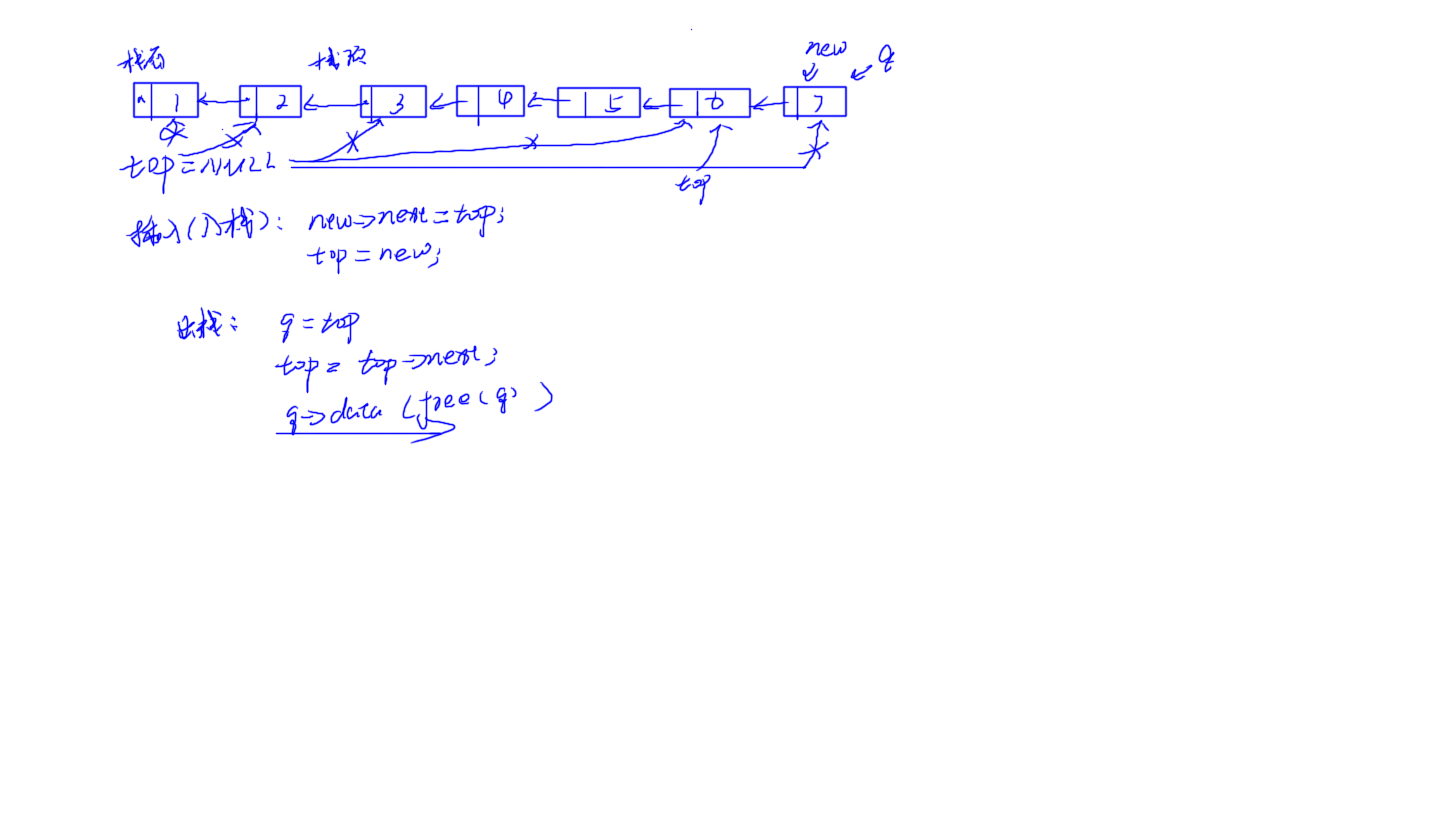 new q
栈底 栈顶
^ 1 2 3 4 5 6 7
top=NULL
top
插入(入栈): new->next=top;
top=new;
出栈: q=top
top= top->next;
q->data (free(q))